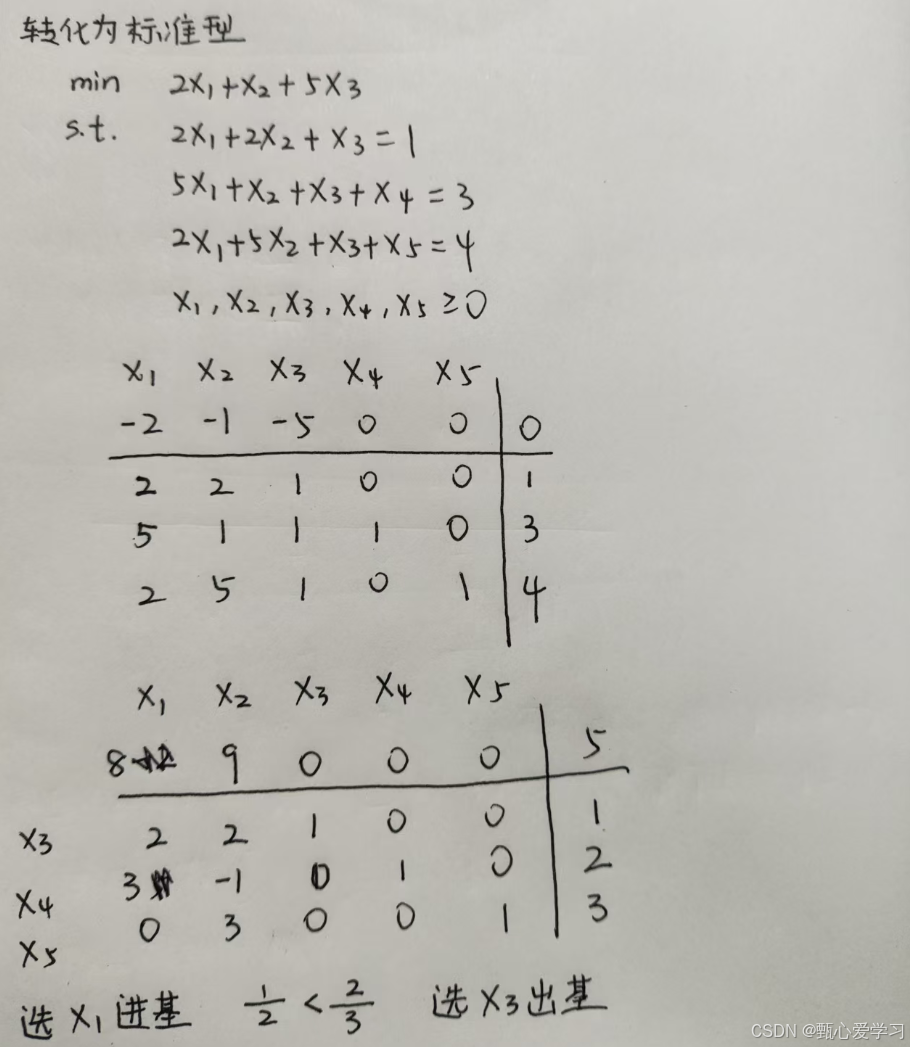 转化为标准型
min 2x₁+x₂+5x₃
s.t. 2x₁+2x₂+x₃=1
5x₁+x₂+x₃+x₄=3
2x₁+5x₂+x₃+x₅=4
x₁,x₂,x₃,x₄,x₅≥0
x₁ x₂ x₃ x₄ x₅
-2 -1 -5 0 0 0
2 2 1 0 0 1
5 1 1 1 0 3
2 5 1 0 1 4
x₁ x₂ x₃ x₄ x₅
8 9 0 0 0 5
x₃ 2 2 1 0 0 1
x₄ 3 -1 0 1 0 2
x₅ 0 3 0 0 1 3
选x₁进基 1/2<2/3 选x₃出基
CSDN @甄心爱学习